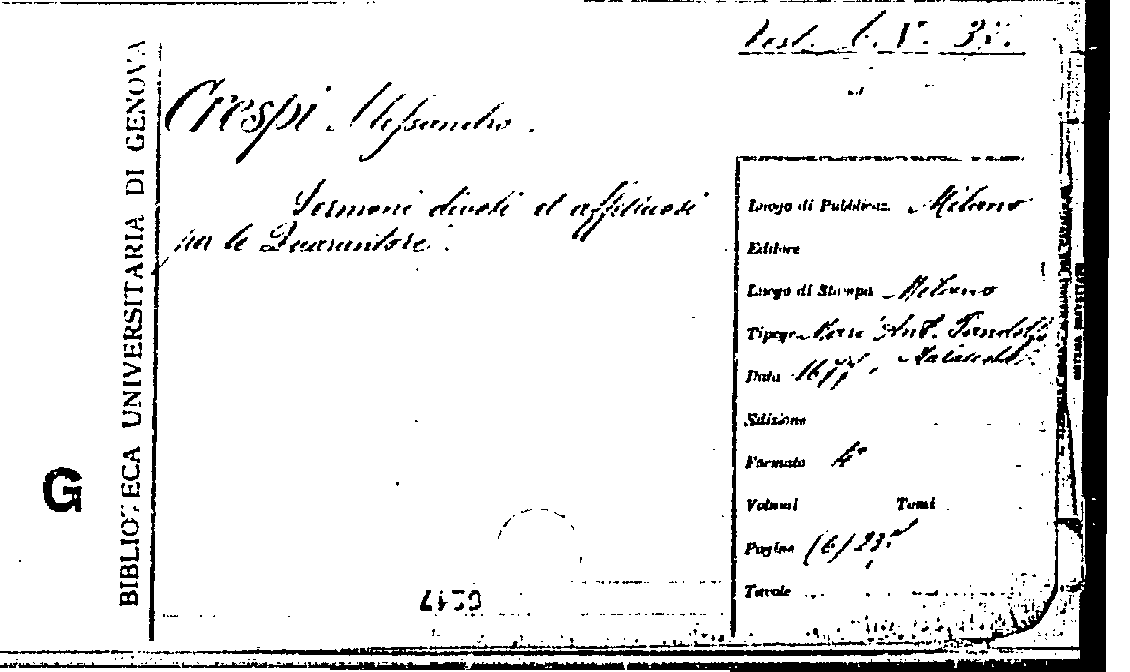 BIBLIOTECA UNIVERSITARIA DI GENOVA
G
Crespi Alessandro.
Sermoni divoti et affettuosi
per le Quarantore.
Luogo di Pubblicaz. Milano
Editore
Luogo di Stampa Milano
Tipogr. Ant. Pandolfo
Malatesta
Data 1677.
Edizione
Formato 4°
Volumi Tomi
Pagine (6)
Tavole